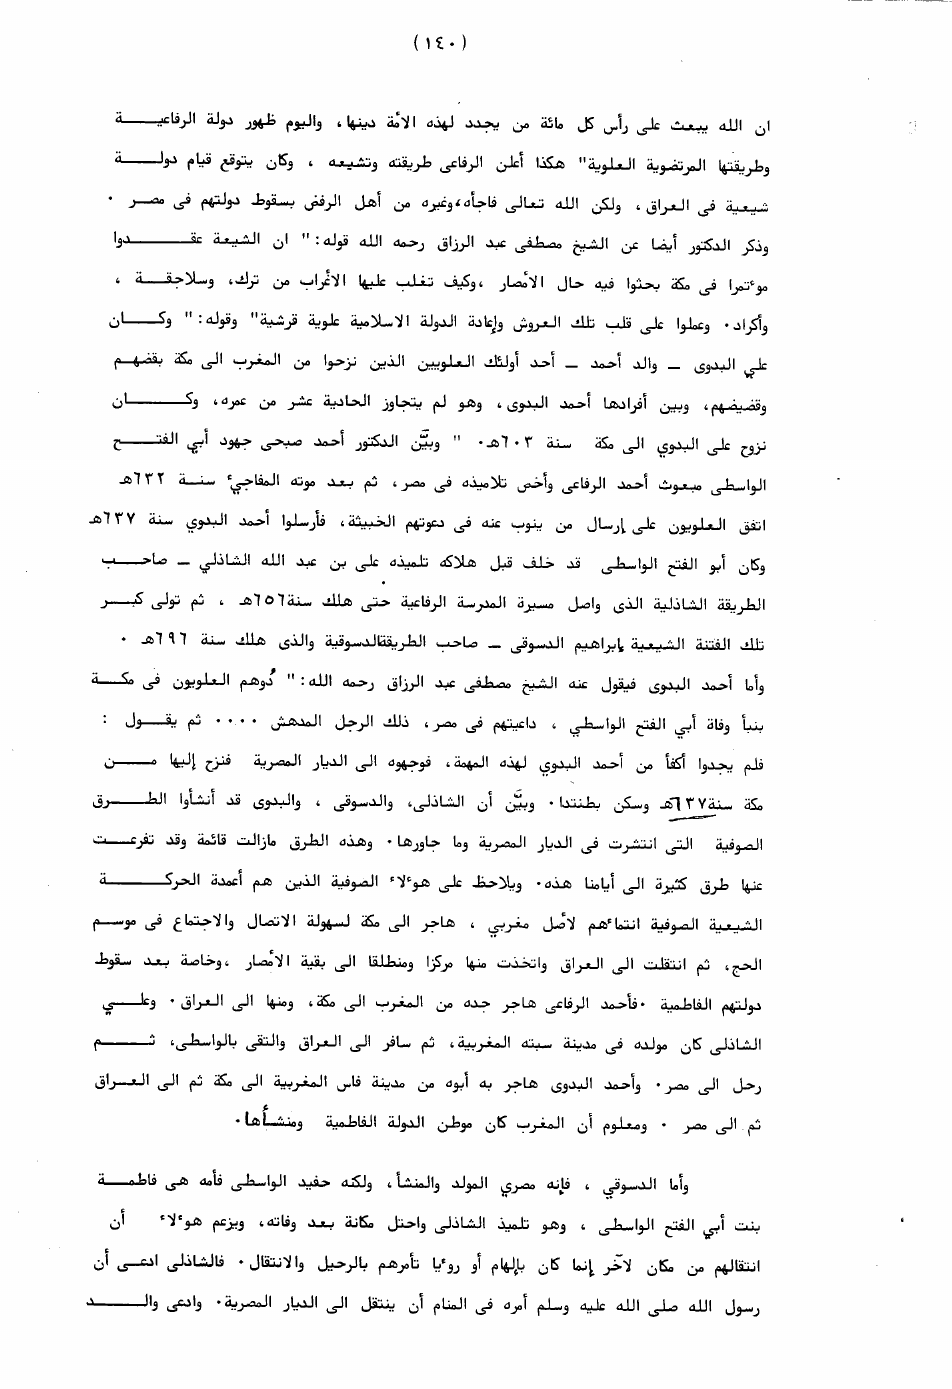 (١٤٠)
ان الله يبعث على رأس كل مائة من يجدد لهذه الأمة دينها، واليوم ظهور دولة الرفاعيــــــة
وطريقتها المرتضوية العلوية" هكذا أعلن الرفاعى طريقته وتشيعه ، وكان يتوقع قيام دولـــــة
شيعية فى العراق ، ولكن الله تعالى فاجأه،وغيره من أهل الرفض بسقوط دولتهم فى مصــر ٠
وذكر الدكتور أيضا عن الشيخ مصطفى عبد الرزاق رحمه الله قوله: " ان الشيعة عقـــــدوا
موءتمرا فى مكة بحثوا فيه حال الأمصار ،وكيف تغلب عليها الأغراب من ترك، وسلاجقــــة ،
وأكراد٠ وعملوا على قلب تلك العروش وإعادة الدولة الاسلامية علوية قرشية" وقوله: " وكــــان
علي البدوى ــ والد أحمد ــ أحد أولئك العلويين الذين نزحوا من المغرب الى مكة بقضهــم
وقضيضهم، وبين أفرادها أحمد البدوى، وهو لم يتجاوز الحادية عشر من عمره، وكـــــــان
نزوح على البدوي الى مكة سنة ٦٠٣هـ٠ " وبيَّن الدكتور أحمد صبحى جهود أبي الفتـــــح
الواسطى مبعوث أحمد الرفاعى وأخص تلاميذه فى مصر، ثم بعد موته المفاجيء سنـــة ٦٣٢هـ
اتفق العلويون على إرسال من ينوب عنه فى دعوتهم الخبيثة، فأرسلوا أحمد البدوي سنة ٦٣٧هـ
وكان أبو الفتح الواسطى قد خلف قبل هلاكه تلميذه على بن عبد الله الشاذلي ــ صاحـــب
الطريقة الشاذلية الذى واصل مسيرة المدرسة الرفاعية حتى هلك سنة٦٥٦هـ ، ثم تولى كبــر
تلك الفتنة الشيعية إبراهيم الدسوقى ــ صاحب الطريقةالدسوقية والذى هلك سنة ٦٩٦هـ ٠
وأما أحمد البدوى فيقول عنه الشيخ مصطفى عبد الرزاق رحمه الله: " دُوهم العلويون فى مكــة
بنبأ وفاة أبي الفتح الواسطي ، داعيتهم فى مصر، ذلك الرجل المدهش ٠٠٠٠ ثم يقـــول :
فلم يجدوا أكفأ من أحمد البدوي لهذه المهمة، فوجهوه الى الديار المصرية فنزح إليها مـــن
مكة سنة٦٣٧هـ وسكن بطنتدا٠ وبيَّن أن الشاذلى، والدسوقى ، والبدوى قد أنشأوا الطـــرق
الصوفية التى انتشرت فى الديار المصرية وما جاورها٠ وهذه الطرق مازالت قائمة وقد تفرعـــت
عنها طرق كثيرة الى أيامنا هذه٠ ويلاحظ على هوءلاء الصوفية الذين هم أعمدة الحركــــــة
الشيعية الصوفية انتماءهم لأصل مغربي ، هاجر الى مكة لسهولة الاتصال والاجتماع فى موســم
الحج، ثم انتقلت الى العراق واتخذت منها مركزا ومنطلقا الى بقية الأمصار ،وخاصة بعد سقوط
دولتهم الفاطمية ٠فأحمد الرفاعى هاجر جده من المغرب الى مكة، ومنها الى العراق٠ وعلــــي
الشاذلى كان مولده فى مدينة سبته المغربية، ثم سافر الى العراق والتقى بالواسطى، ثـــــم
رحل الى مصر٠ وأحمد البدوى هاجر به أبوه من مدينة فاس المغربية الى مكة ثم الى العــراق
ثم الى مصر ٠ ومعلوم أن المغرب كان موطن الدولة الفاطمية ومنشأها٠
وأما الدسوقي ، فإنه مصري المولد والمنشأ، ولكنه حفيد الواسطى فأمه هى فاطمــــة
بنت أبي الفتح الواسطى ، وهو تلميذ الشاذلى واحتل مكانة بعد وفاته، ويزعم هوءلاء أن
انتقالهم من مكان لآخر إنما كان بإلهام أو روءيا تأمرهم بالرحيل والانتقال٠ فالشاذلى ادعــى أن
رسول الله صلى الله عليه وسلم أمره فى المنام أن ينتقل الى الديار المصرية٠ وادعى والــــد